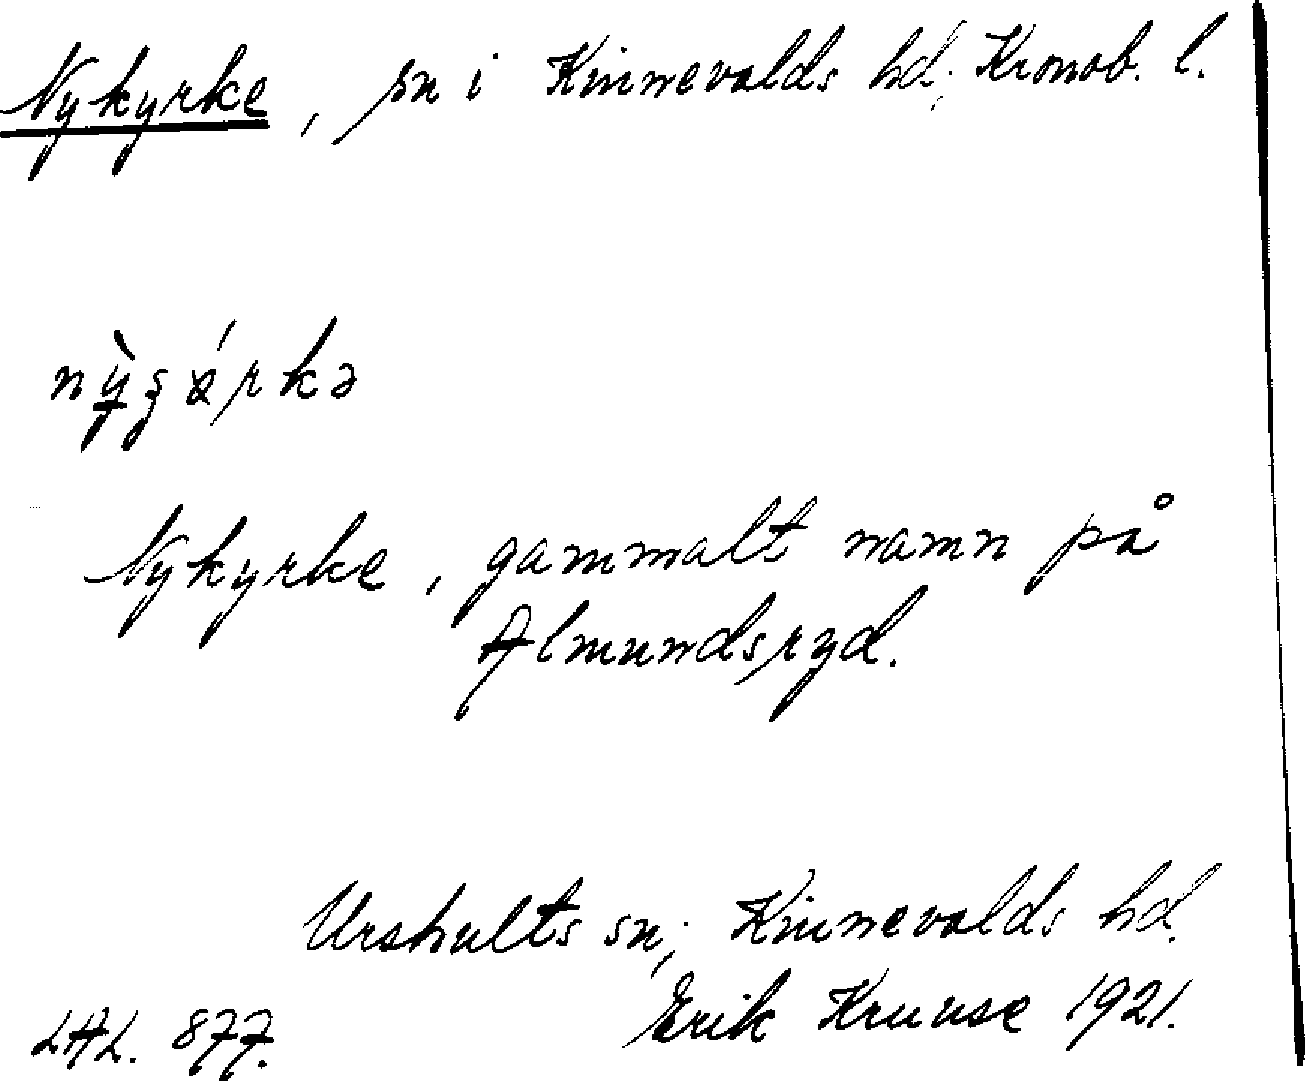 Nykyrke, sn i Kinnevalds hd, Kronob. l.
Nykyrke, gammalt namn på
Almundsryd.
Urshults sn, Kinnevalds hd.
LAL. 877. Erik Kruuse 1921.